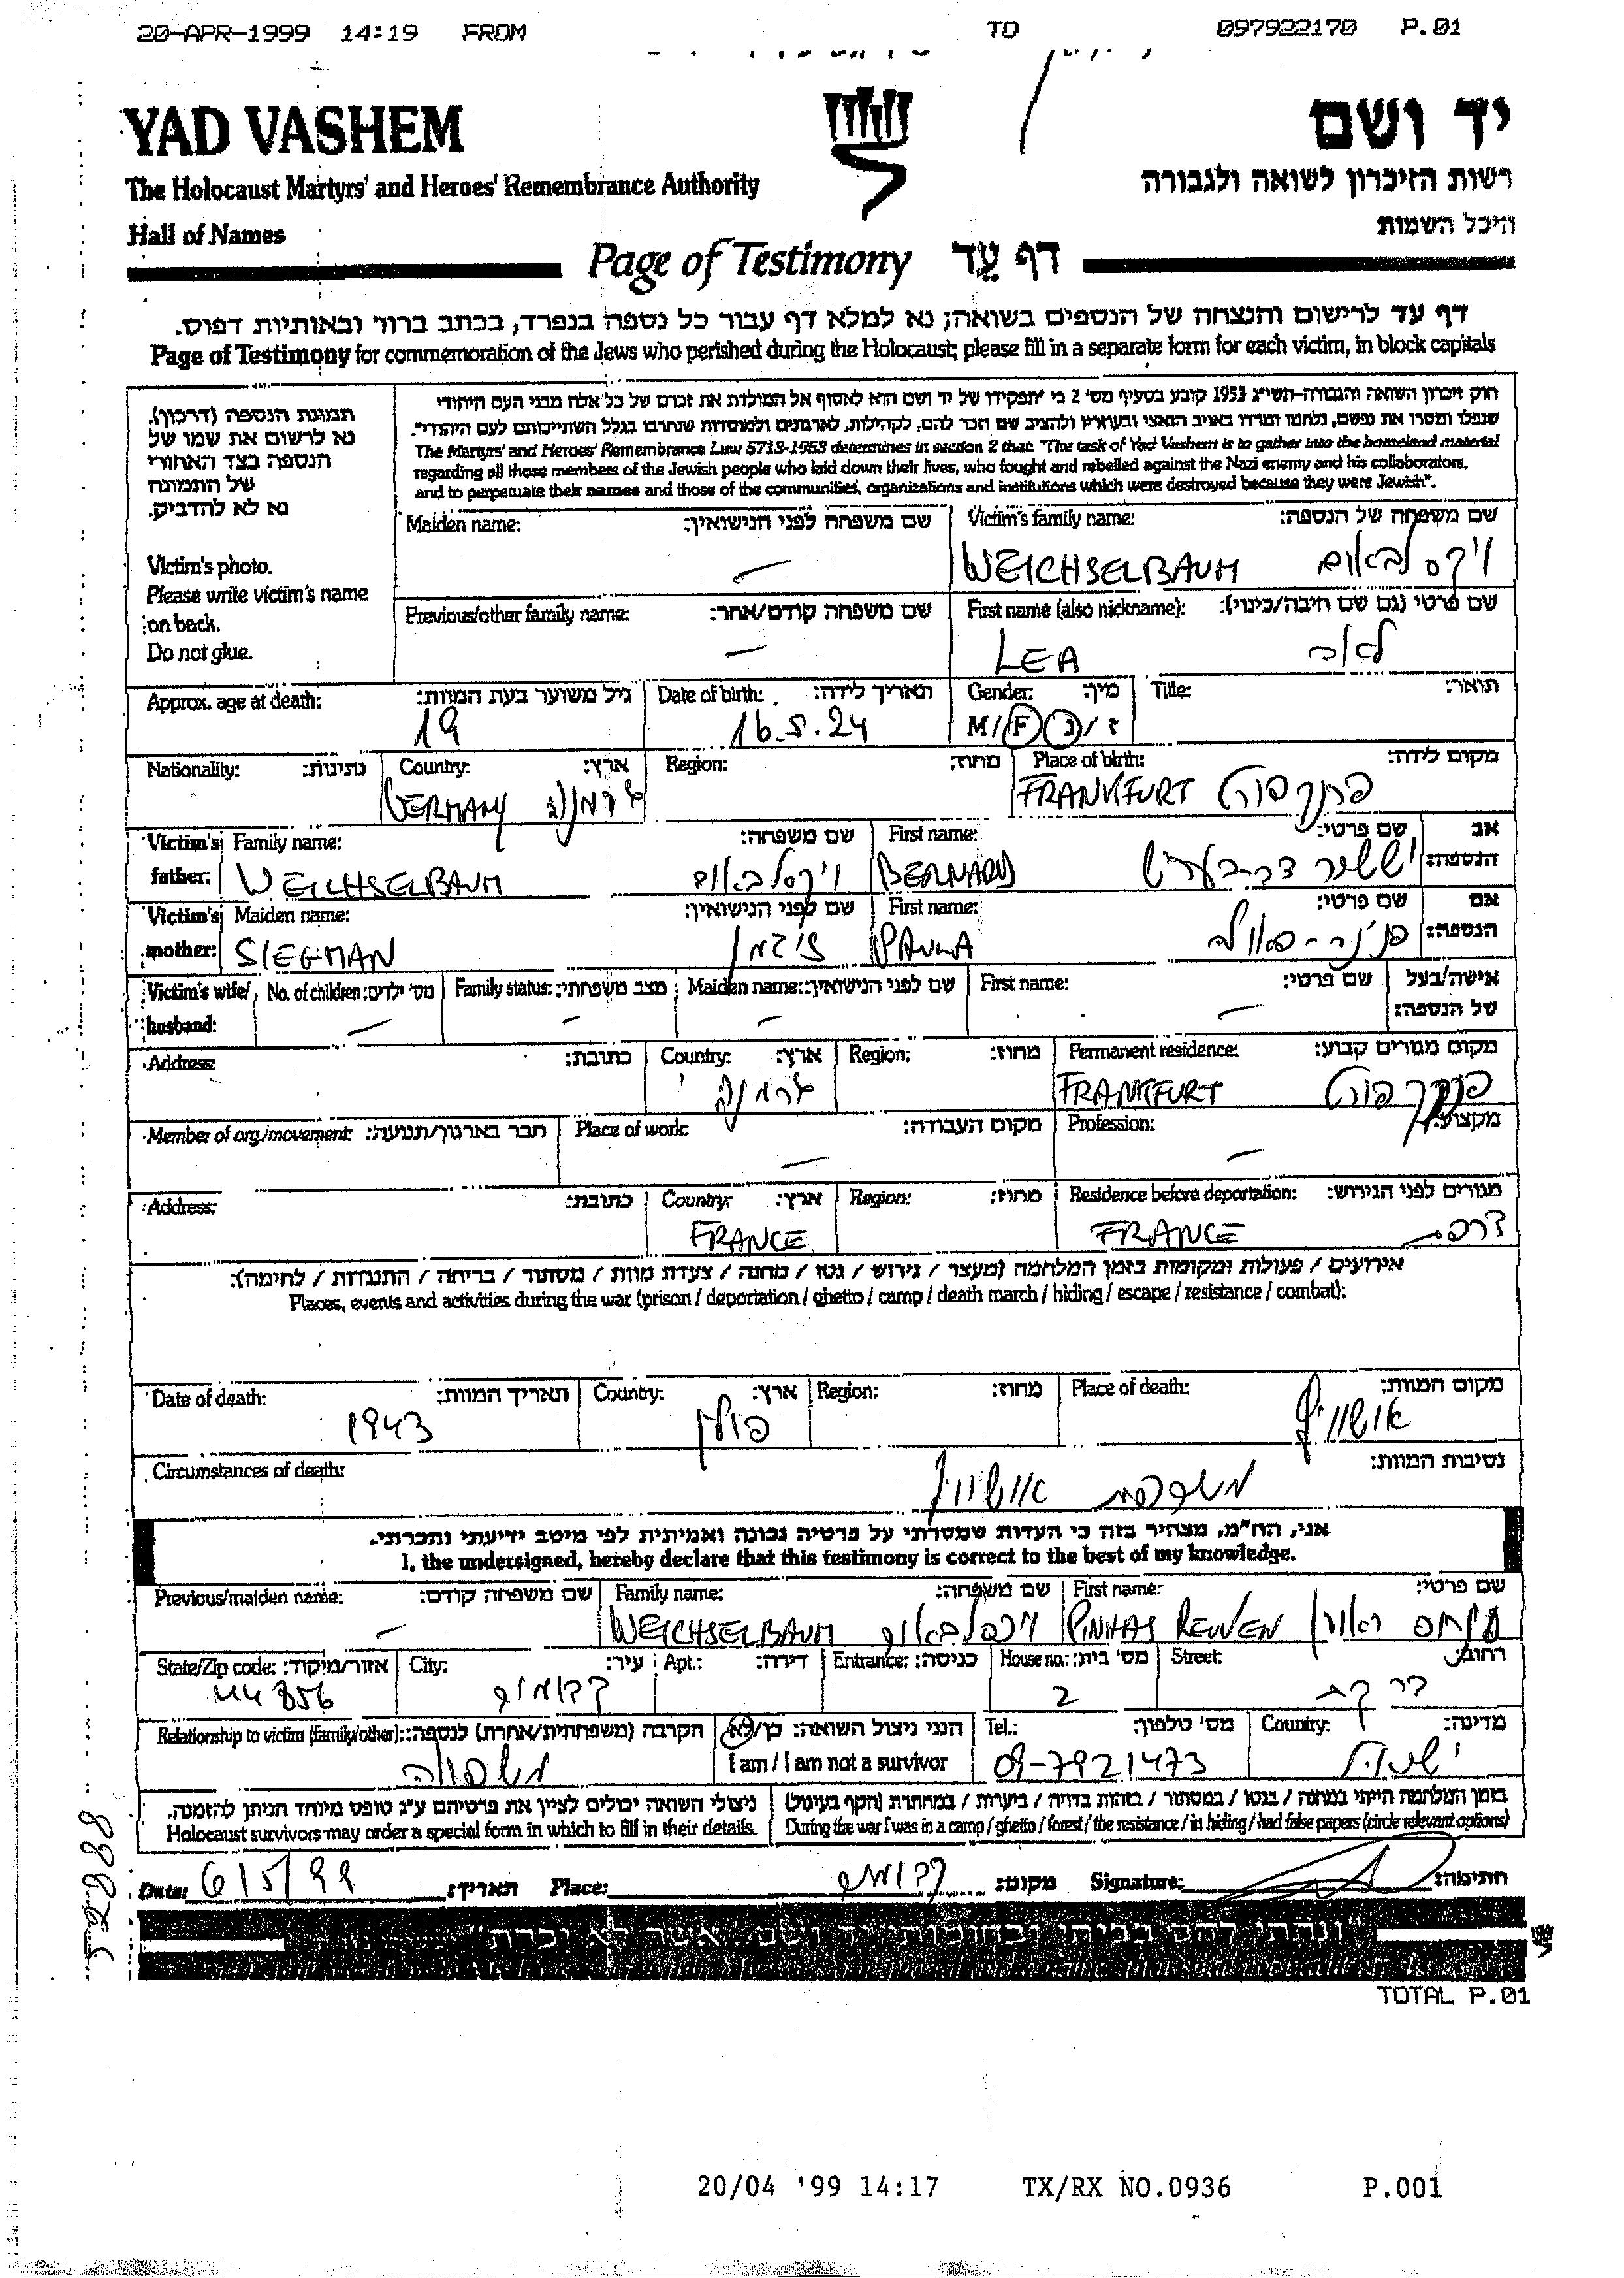 20-APR-1999 14:19 FROM TO 097922170 P.01
YAD VASHEM יד ושם
The Holocaust Martyrs' and Heroes' Remembrance Authority רשות הזיכרון לשואה ולגבורה
Hall of Names היכל השמות
Page of Testimony דף עד
דף עד לרישום והנצחה של הנספים בשואה; נא למלא דף עבור כל נספה בנפרד, בכתב ברור ובאותיות דפוס.
Page of Testimony for commemoration of the Jews who perished during the Holocaust; please fill in a separate form for each victim, in block capitals
חוק זיכרון השואה והגבורה-תשי"ג 1953 קובע בסעיף מס' 2 כי "תפקידו של יד ושם הוא לאסוף אל המולדת את זכרם של כל אלה מבני העם היהודי
שנפלו ומסרו את נפשם, נלחמו ומרדו באויב הנאצי ובעוזריו ולהציב שם וזכר להם, לקהילות, לארגונים ולמוסדות שנחרבו בגלל השתייכותם לעם היהודי".
The Martyrs' and Heroes' Remembrance Law 5713-1953 determines in section 2 that: "The task of Yad Vashem is to gather into the homeland material
regarding all those members of the Jewish people who laid down their lives, who fought and rebelled against the Nazi enemy and his collaborators,
and to perpetuate their names and those of the communities, organizations and institutions which were destroyed because they were Jewish".
תמונת הנספה (דרכון).
נא לרשום את שמו של
הנספה בצד האחורי
של התמונה
נא לא להדביק.
Victim's photo.
Please write victim's name
on back.
Do not glue.
Maiden name: שם משפחה לפני הנישואין: Victim's family name: שם משפחה של הנספה:
– WEICHSELBAUM ויקסלבאום
Previous/other family name: שם משפחה קודם/אחר: First name (also nickname): שם פרטי (גם שם חיבה/כינוי):
– LEA לאה
Approx. age at death: גיל משוער בעת המוות: Date of birth: תאריך לידה: Gender: מין: Title: תואר:
19 16.5.24 M/F נ/ז
Nationality: נתינות: Country: ארץ: Region: מחוז: Place of birth: מקום לידה:
GERMANY גרמניה FRANKFURT פרנקפורט
Victim's father: Family name: שם משפחה: First name: שם פרטי: אב הנספה:
WEICHSELBAUM ויקסלבאום BERNARD יששכר
Victim's mother: Maiden name: שם לפני הנישואין: First name: שם פרטי: אם הנספה:
SIEGMAN זיגמן PAULA
Victim's wife/husband: No. of children: מס' ילדים: Family status: מצב משפחתי: Maiden name: שם לפני הנישואין: First name: שם פרטי: אישה/בעל של הנספה:
– – – –
Address: כתובת: Country: ארץ: Region: מחוז: Permanent residence: מקום מגורים קבוע:
גרמניה FRANKFURT פרנקפורט
Member of org./movement: חבר בארגון/תנועה: Place of work: מקום העבודה: Profession: מקצוע:
– –
Address: כתובת: Country: ארץ: Region: מחוז: Residence before deportation: מגורים לפני הגירוש:
FRANCE FRANCE צרפת
אירועים / פעולות ומקומות בזמן המלחמה (מעצר / גירוש / גטו / מחנה / צעדת מוות / מסתור / בריחה / התנגדות / לחימה):
Places, events and activities during the war (prison / deportation / ghetto / camp / death march / hiding / escape / resistance / combat):
Date of death: תאריך המוות: Country: ארץ: Region: מחוז: Place of death: מקום המוות:
1943 פולין אושוויץ
Circumstances of death: נסיבות המוות:
אושוויץ
אני, הח"מ, מצהיר בזה כי העדות שמסרתי על פרטיה נכונה ואמיתית לפי מיטב ידיעתי והכרתי.
I, the undersigned, hereby declare that this testimony is correct to the best of my knowledge.
Previous/maiden name: שם משפחה קודם: Family name: שם משפחה: First name: שם פרטי:
– WEICHSELBAUM ויכסלבאום PINHAS REUVEN פנחס ראובן
State/Zip code: אזור/מיקוד: City: עיר: Apt.: דירה: Entrance: כניסה: House no.: מס' בית: Street: רחוב:
44856 קדומים 2
Relationship to victim (family/other): הקרבה (משפחתית/אחרת) לנספה: הנני ניצול השואה: כן/לא Tel.: מס' טלפון: Country: מדינה:
משפחה I am / I am not a survivor 09-7921473 ישראל
ניצולי השואה יכולים לציין את פרטיהם ע"ג טופס מיוחד הניתן להזמנה. בזמן המלחמה הייתי במחנה / בגטו / במסתור / בזהות בדויה / ביערות / במחתרת (הקף בעיגול)
Holocaust survivors may order a special form in which to fill in their details. During the war I was in a camp / ghetto / forest / the resistance / in hiding / had false papers (circle relevant options)
Date: 6/5/99 תאריך: Place: קדומים מקום: Signature: חתימה:
TOTAL P.01
20/04 '99 14:17 TX/RX NO.0936 P.001